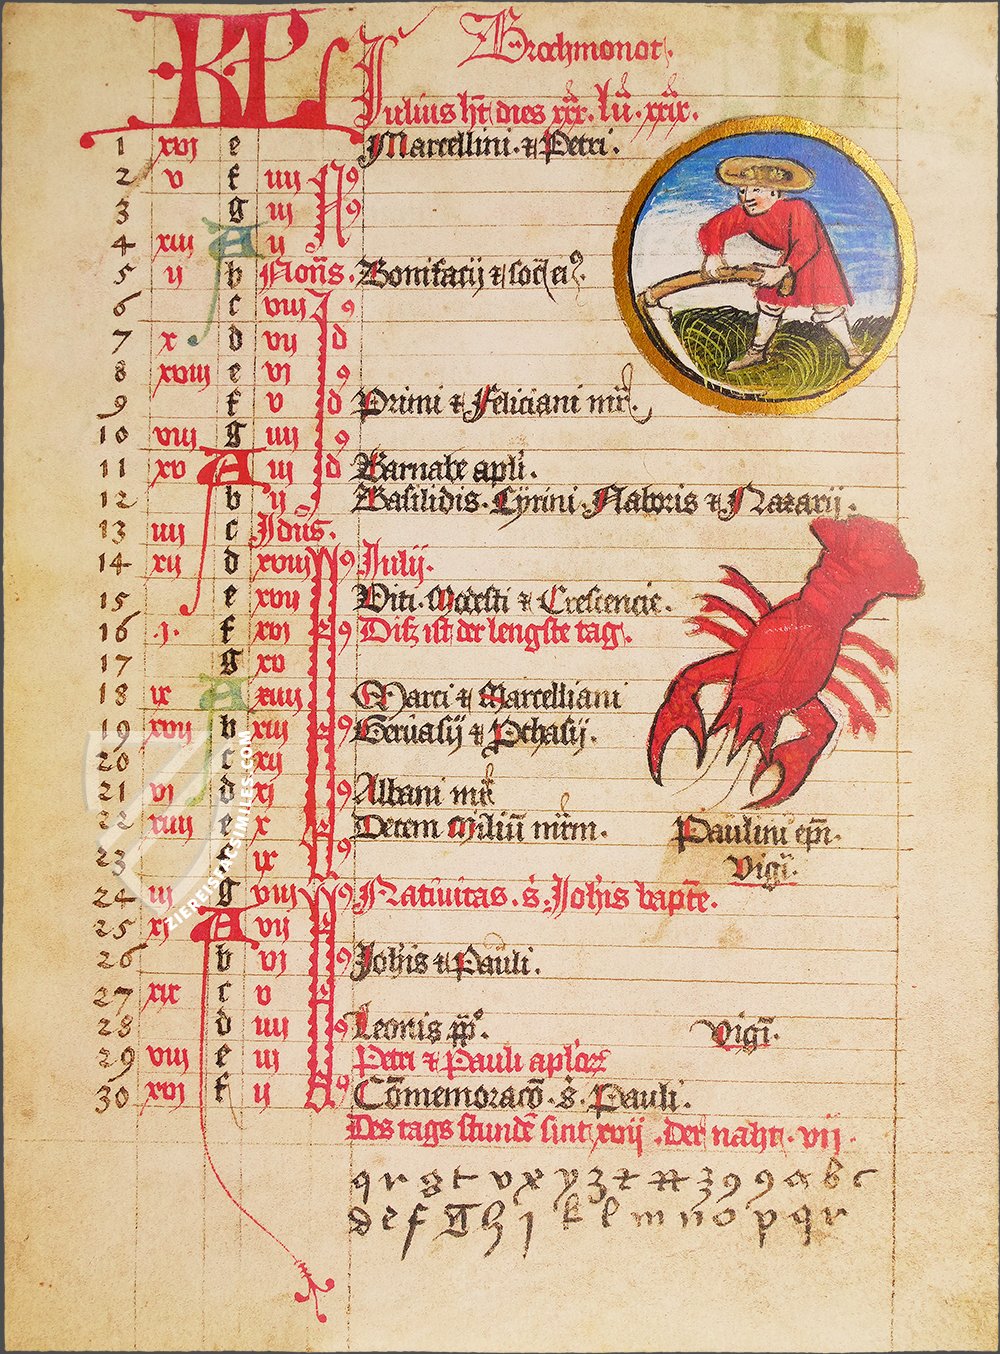 KL Brochmonot.
Julius ht dies xxx. lu. xxix.
1 xvj e Marcellini. & Petri.
2 v f iiij N9
3 g iij 9
4 xiij A ij
5 ij b Nonis. Bonifacij & soc ei9.
6 c viij J9
7 x d vij d
8 xviij e vj 9
9 f v d Primi & Feliciani mr.
10 viij g iiij 9
11 xv A iij d Barnabe apli.
12 b ij Basilidis. Cyrini. Naboris & Nazarij.
13 iiij c Jdus.
14 xij d xviij 9 Julij.
15 e xvij Viti. Modesti & Crescencie.
16 .j. f xvj 9 Disz ist der lengste tag.
17 g xv
18 ix A xiiij Marci & Marcelliani
19 xvij b xiij 9 Geruasij & Pthasij.
20 c xij
21 vj d xj 9 Albani mr
22 xiiij e x Decem Miliu mrm. Paulini epi.
23 f ix 9 Vigi.
24 iij g viij 9 Natiuitas. s. Johis bapte.
25 xj A vij
26 b vj 9 Johis & Pauli.
27 xix c v
28 d iiij 9 Leonis pp. Vigi.
29 viij e iij Petri & Pauli aplor
30 xvj f ij 9 Comemoraco. s. Pauli.
Des tags stunde sint xvij. Der naht. vij.
q r s t v x y z & 9 9 a b c
d e f g h i k l m n o p q r
ZIEREISFACSIMILES.COM